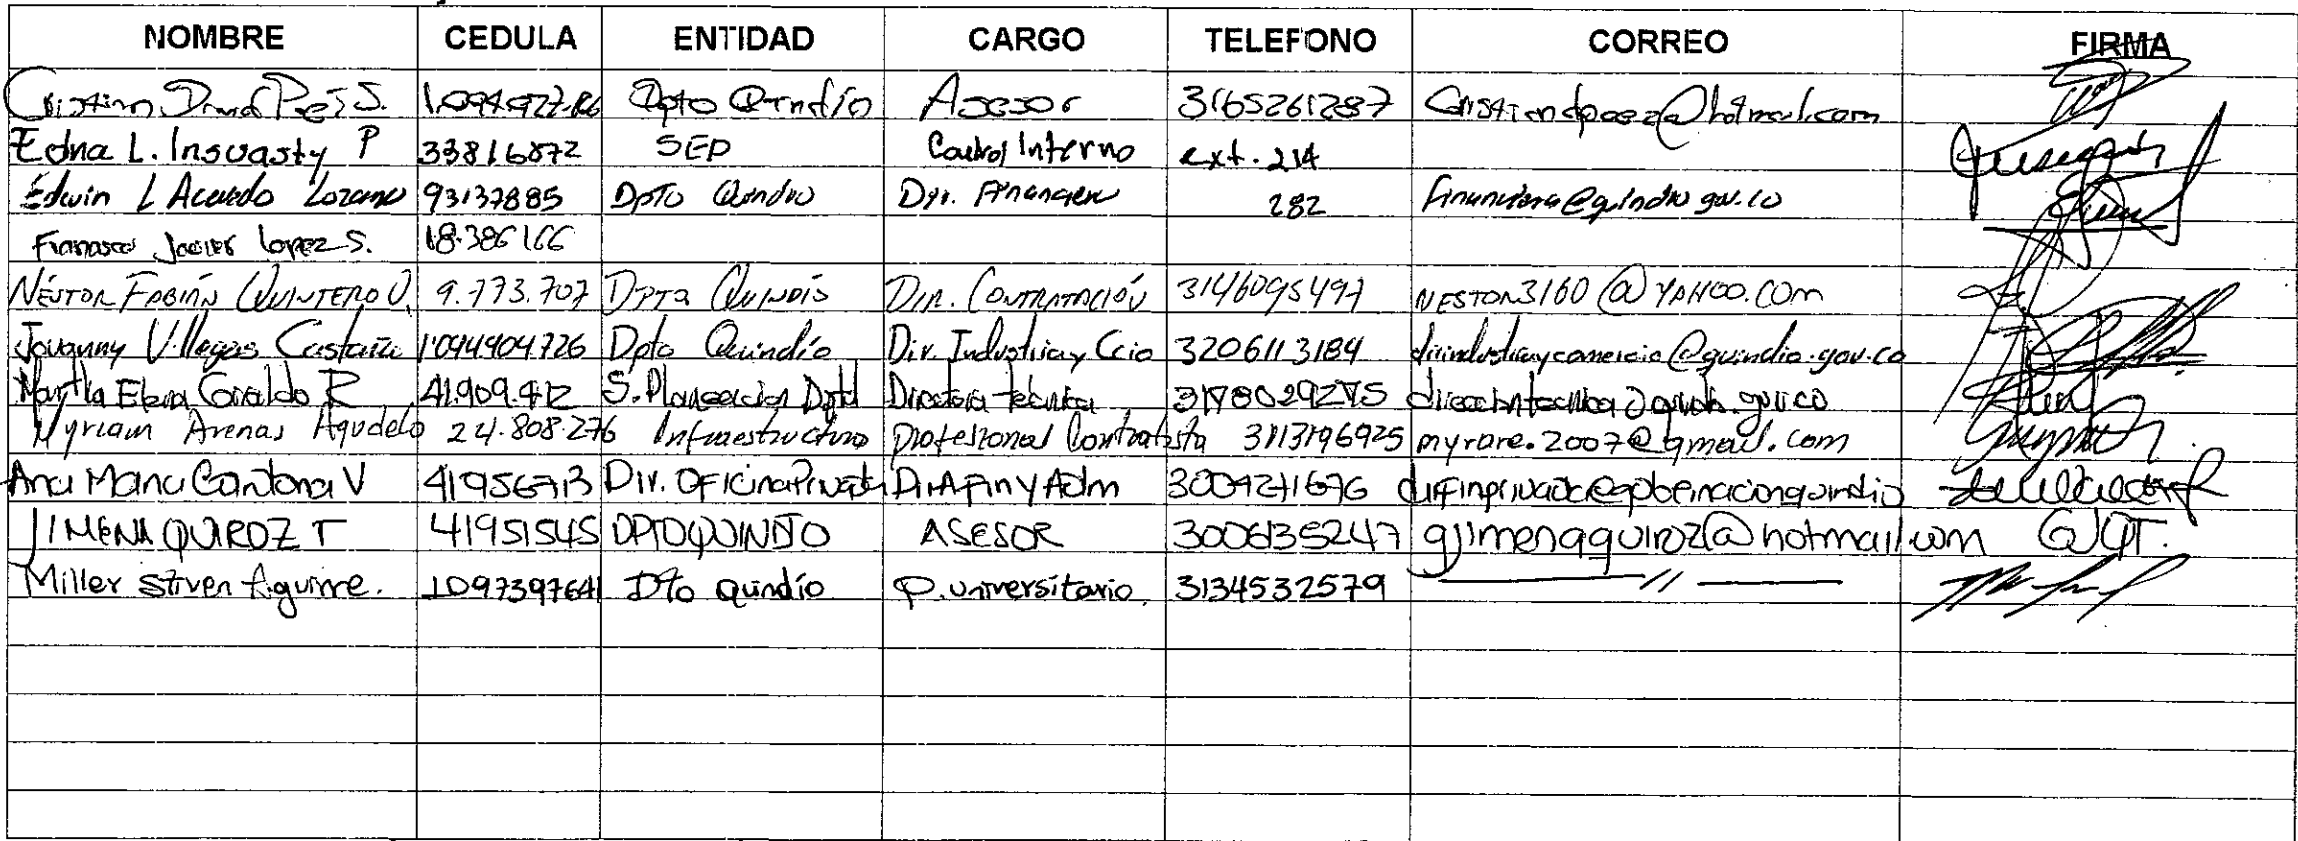 NOMBRE CEDULA ENTIDAD CARGO TELEFONO CORREO FIRMA
Cristian David Paez S. Dpto Quindío Asesor 3165261287 Cristiandpaez@hotmail.com
Edna L. Insuasty P 33816872 SEP Control Interno ext. 214
Edwin L Acevedo Lozano 93137885 Dpto Quindio Dir. Financiera 282 financiera@quindio.gov.co
Francisco Javier Lopez S. 18.386166
NÉSTOR FABIÁN QUINTERO O. 9.773.707 DPTO QUINDÍO DIR. CONTRATACIÓN 3146095497 NESTOR3160@YAHOO.COM
Jovanny Villegas Castaño 1'094904.726 Dpto Quindío Dir. Industria y Ccio 3206113184 dirindustriaycomercio@quindio.gov.co
Martha Elena Giraldo R 41.909.412 S. Planeación Dptal Directora técnica
Myriam Arenas Agudelo 24.808.276 Infraestructura Profesional Contratista 3113196925 myrare.2007@gmail.com
Ana Maria V Div. Oficina Privada Dir Afin y Adm
JIMENA QUIROZ T 41951545 DPTO QUINDIO ASESOR 3006135247 gjimenaquiroz@hotmail.com GJQT.
Miller Stiven Aguirre. 1097397641 Dto Quindío P. universitario. 3134532579 — // —